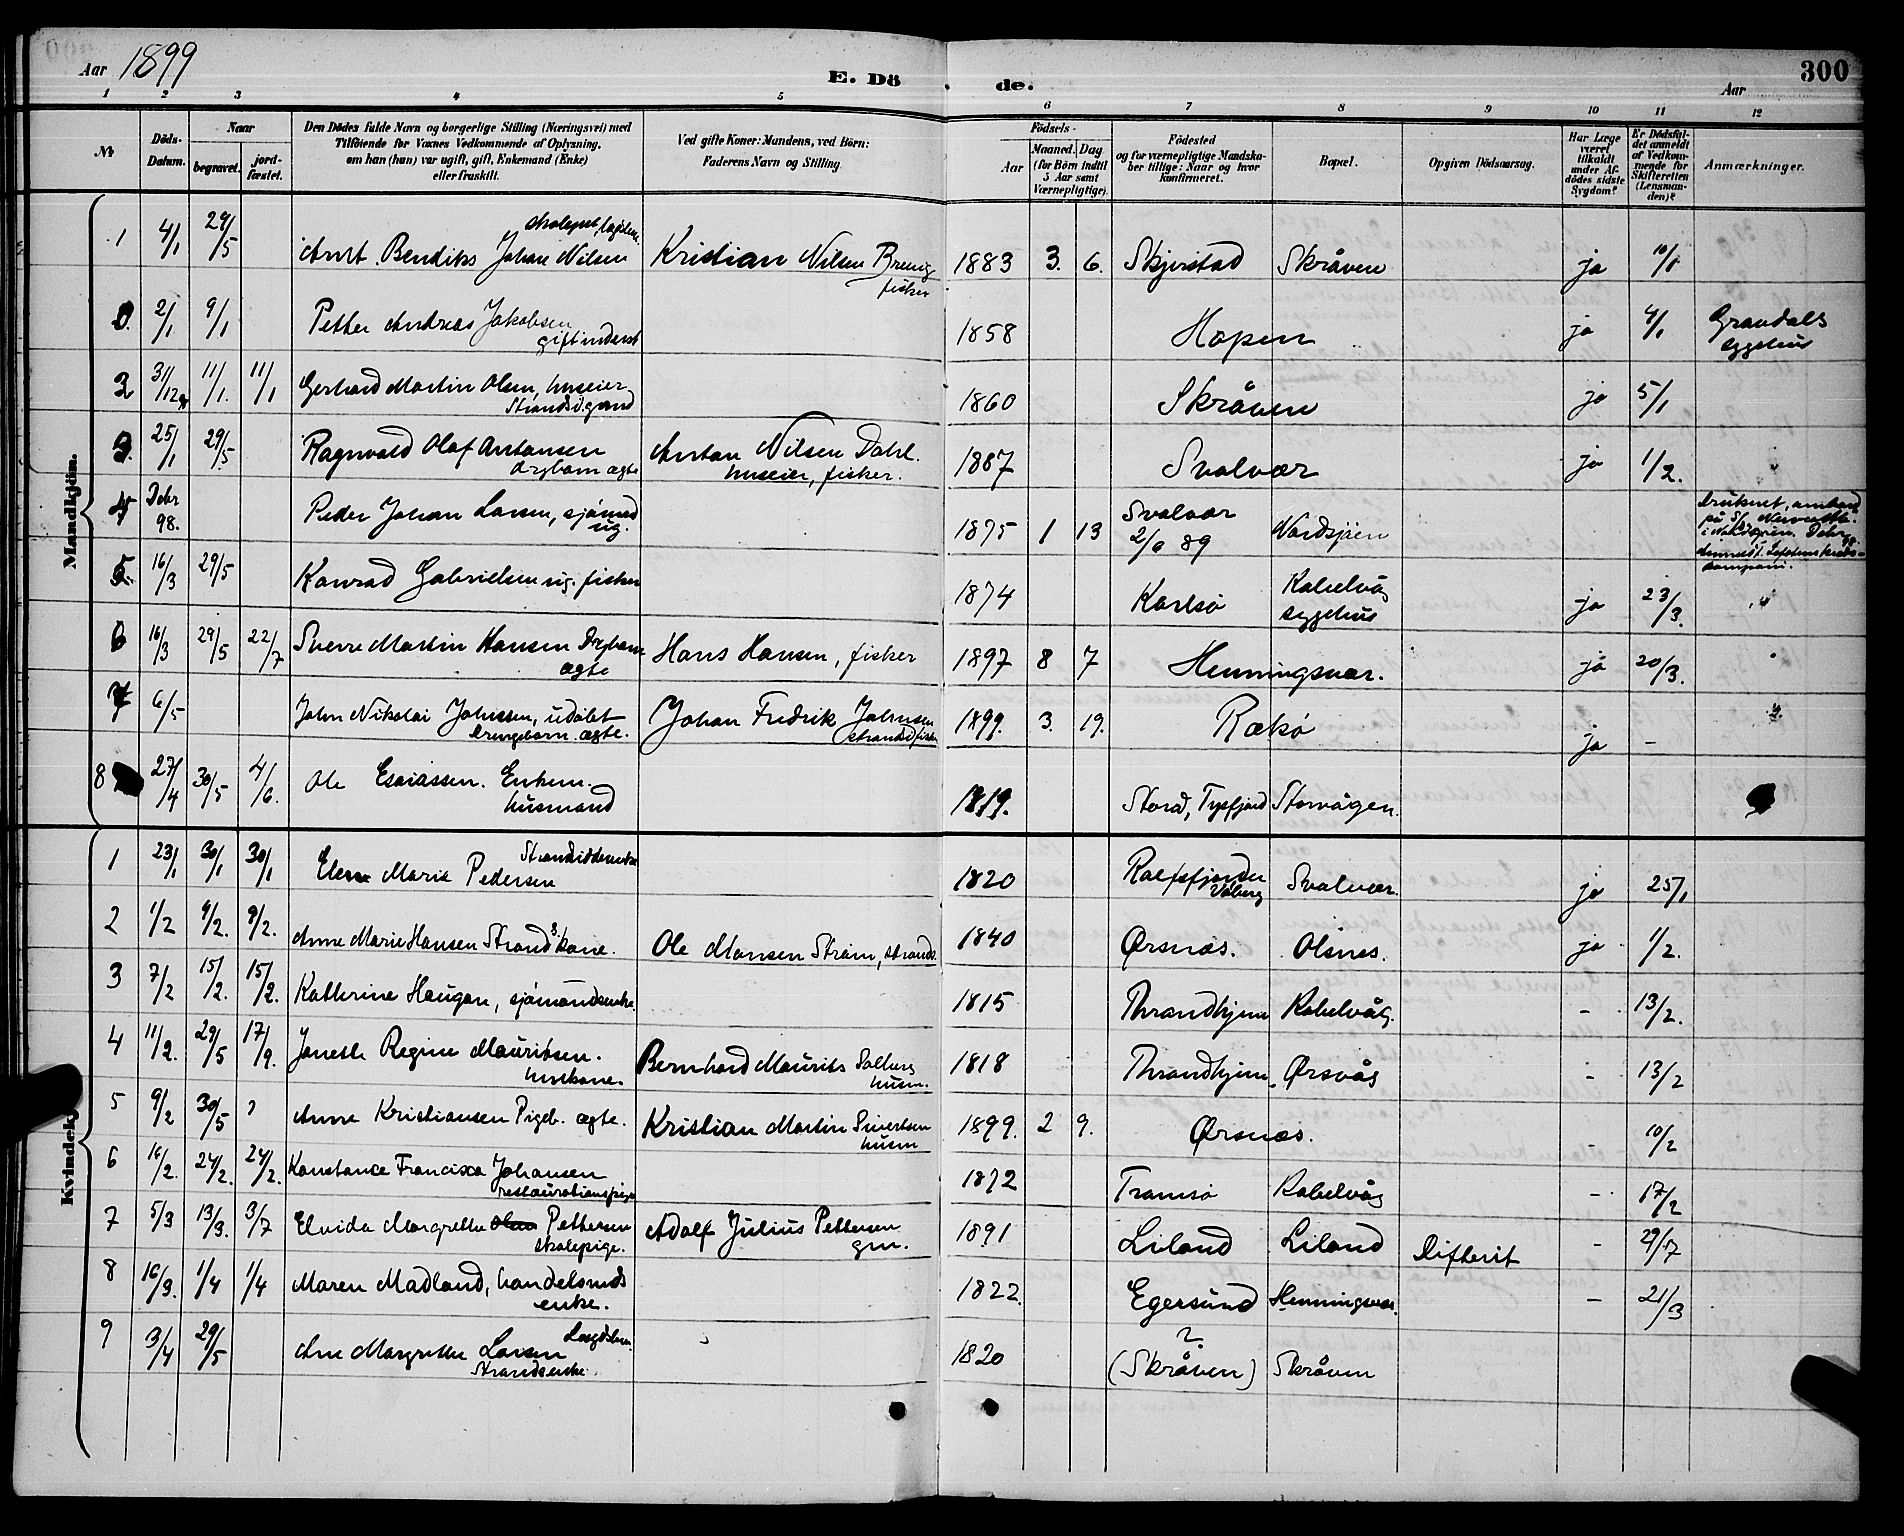 Aar 1899
E. Dö de.
Aar
300
1 2 3 4 5 6 7 8 9 10 11 12
№
Döds-Datum.
Naar
begravet.
jord-fæstet.
Den Dödes fulde Navn og borgerlige Stilling (Næringsvei) med
Tilföiende for Voxnes Vedkommende af Oplysning,
om han (hun) var ugift, gift, Enkemand (Enke)
eller fraskilt.
Ved gifte Koner: Mandens, ved Börn:
Faderens Navn og Stilling.
Födsels-
Aar
Maaned. Dag
(for Börn indtil
5 Aar samt
Værnepligtige).
Födested
og for værnepligtige Mandska-
ber tillige: Naar og hvor
konfirmeret.
Bopæl.
Opgiven Dödsaarsag.
Har Læge
været
tilkaldt
under Af-
dödes sidste
Sygdom?
Er Dödsfal-
det anmeldt
af Vedkom-
mende for
Skifteretten
(Lensman-
den)?
Anmærkninger.
Mandkjön.
1 4/1 29/5 Arnt Bendiks Johan Nilsen Kristian Nilsen fisker 1883 3. 6. Skjerstad Skråven ja 10/1
2/1 9/1 Petter Andreas Jakobsen gift inderst 1858 Hopen ja 4/1 Gravdals sygehus
2 31/12 11/1. 11/1 Gerhard Martin Olsen, huseier 1860 Skråven ja 5/1
3. 25/1 29/5 Ragnvald Olaf Antonsen drgbarn ægte Anton Nilsen Dahl. huseier, fisker. 1887 Svolvær ja 1/2.
4 Dcbr 98. Peder Johan Larsen, sjömand ug. 1875 1 13 Svolvær 89 Nordsjöen Druknet, ombord på
5 16/3 29/5 Konrad Gabrielsen ug. fisker 1874 Karlsö Kabelvåg sygehus ja 23/3.
6 16/3 29/5 22/7 Sverre Martin Hansen Drgbarn ægte Hans Hansen, fisker 1897 8 7 Henningsvær. ja 20/3.
7 6/5 John Nikolai Johnsen, udöbt Drengebarn ægte. Johan Fredrik Johnsen 1899. 3. 19. Rækö ja -
8 27/4 30/5 4/6. Ole Esaiassen. Enkem. husmand 1819. Stord, Tysfjord Storvågen.
Kvindekj
1 23/1 30/1 30/1 Elen Marie Pedersen 1820 Svolvær. ja 25/1
2 1/2 9/2. 9/2. Anne Marie Hansen Strands.kone. Ole Hansen Ström, strands. 1840 Örsnes. Olsnes. ja 1/2.
3 7/2 15/2. 15/2. Kathrine Haugan, sjömandsenke. 1815 Throndhjem Kabelvåg. - 13/2.
4 11/2. 29/5 17/9. Janette Regine Mauritsen. huskone. Bernhard Maurits husm. 1818 Throndhjem. Ørsvåg - 13/2
5 9/2 30/5 ? Anne Kristiansen Pigeb. ægte. Kristian Martin Sivertsen husm 1899. 2 9. Ørsnes. - 10/2
6 16/2. 24/2. 24/2. Konstance Francisca Johansen restaurationspige 1872 Tromsö Kabelvåg - 17/2
7 5/3 13/3. 3/7 Elvida Margrethe Pettersen skolepige. Adolf Julius Pettersen gm. 1891 Liland Liland Difterit - 29/7
8 16/3. 1/4 1/4 Maren Madland, handelsmds enke. 1822. Egersund Henningsvær. - 21/3
9 3/4 29/5 Ane Margrethe Larsen Strandsenke. 1820 ? (Skråven) Skråven